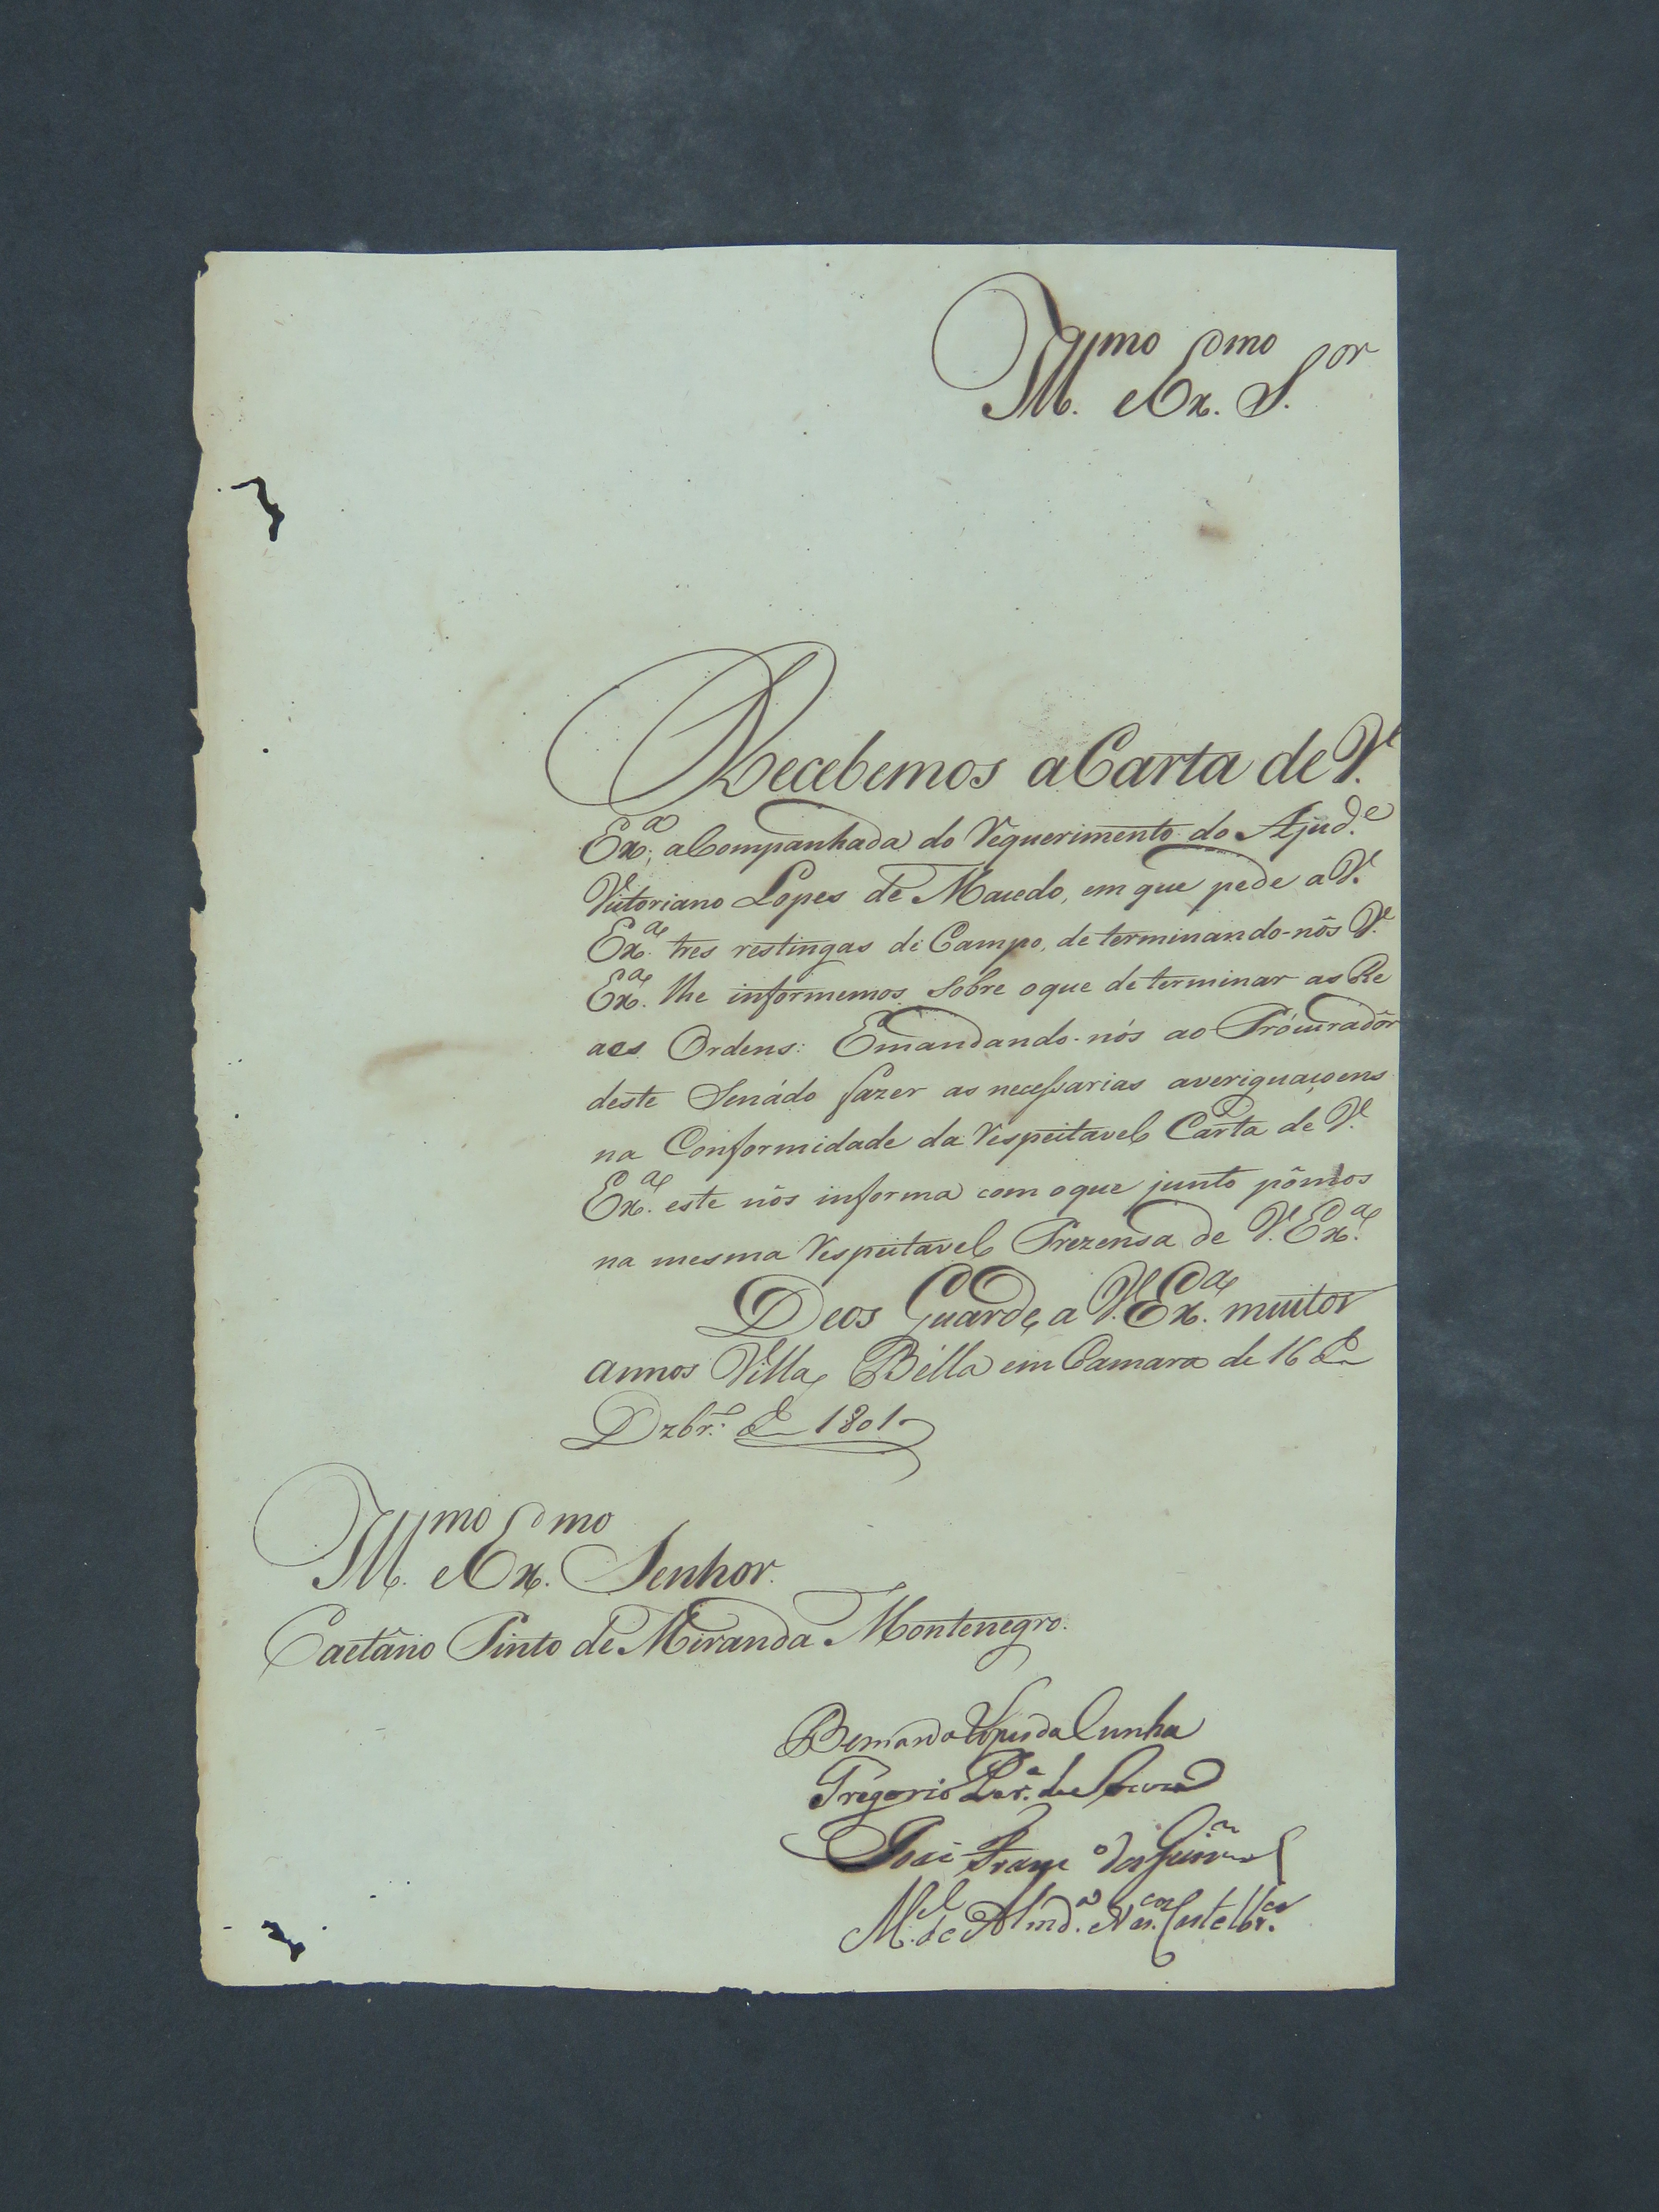 Ill.mo e Ex.mo S.or
Recebemos a Carta de V.
Ex.a, aCompanhada do Requerimento do Ajud.e
Victoriano Lopes de Macedo, em que pede a V.
Ex.a tres restingas de Campo, determinando-nôs V.
Ex.a lhe informemos sobre oque determinar as Re
aes Ordens: Emandando-nós ao Prócuradôr
deste Senádo fazer as necessarias averiguaçoens
na Conformidade da Respeitavel Carta de V.
Ex.a este nôs informa com oque junto pômos
na mesma Respeitavel Prezensa de V. Ex.a
Deos Guarde a V. Ex.a muitos
annos Villa Bélla em Camara de 16 de
Dzbr.o de 1801
Ill.mo e Ex.mo Senhor
Caetâno Pinto de Miranda Montenegro.
Bernardo Lopes da Cunha
Gregorio Per.a de Souza
José Franc.o dos Guim.es
M.el de Almd.a